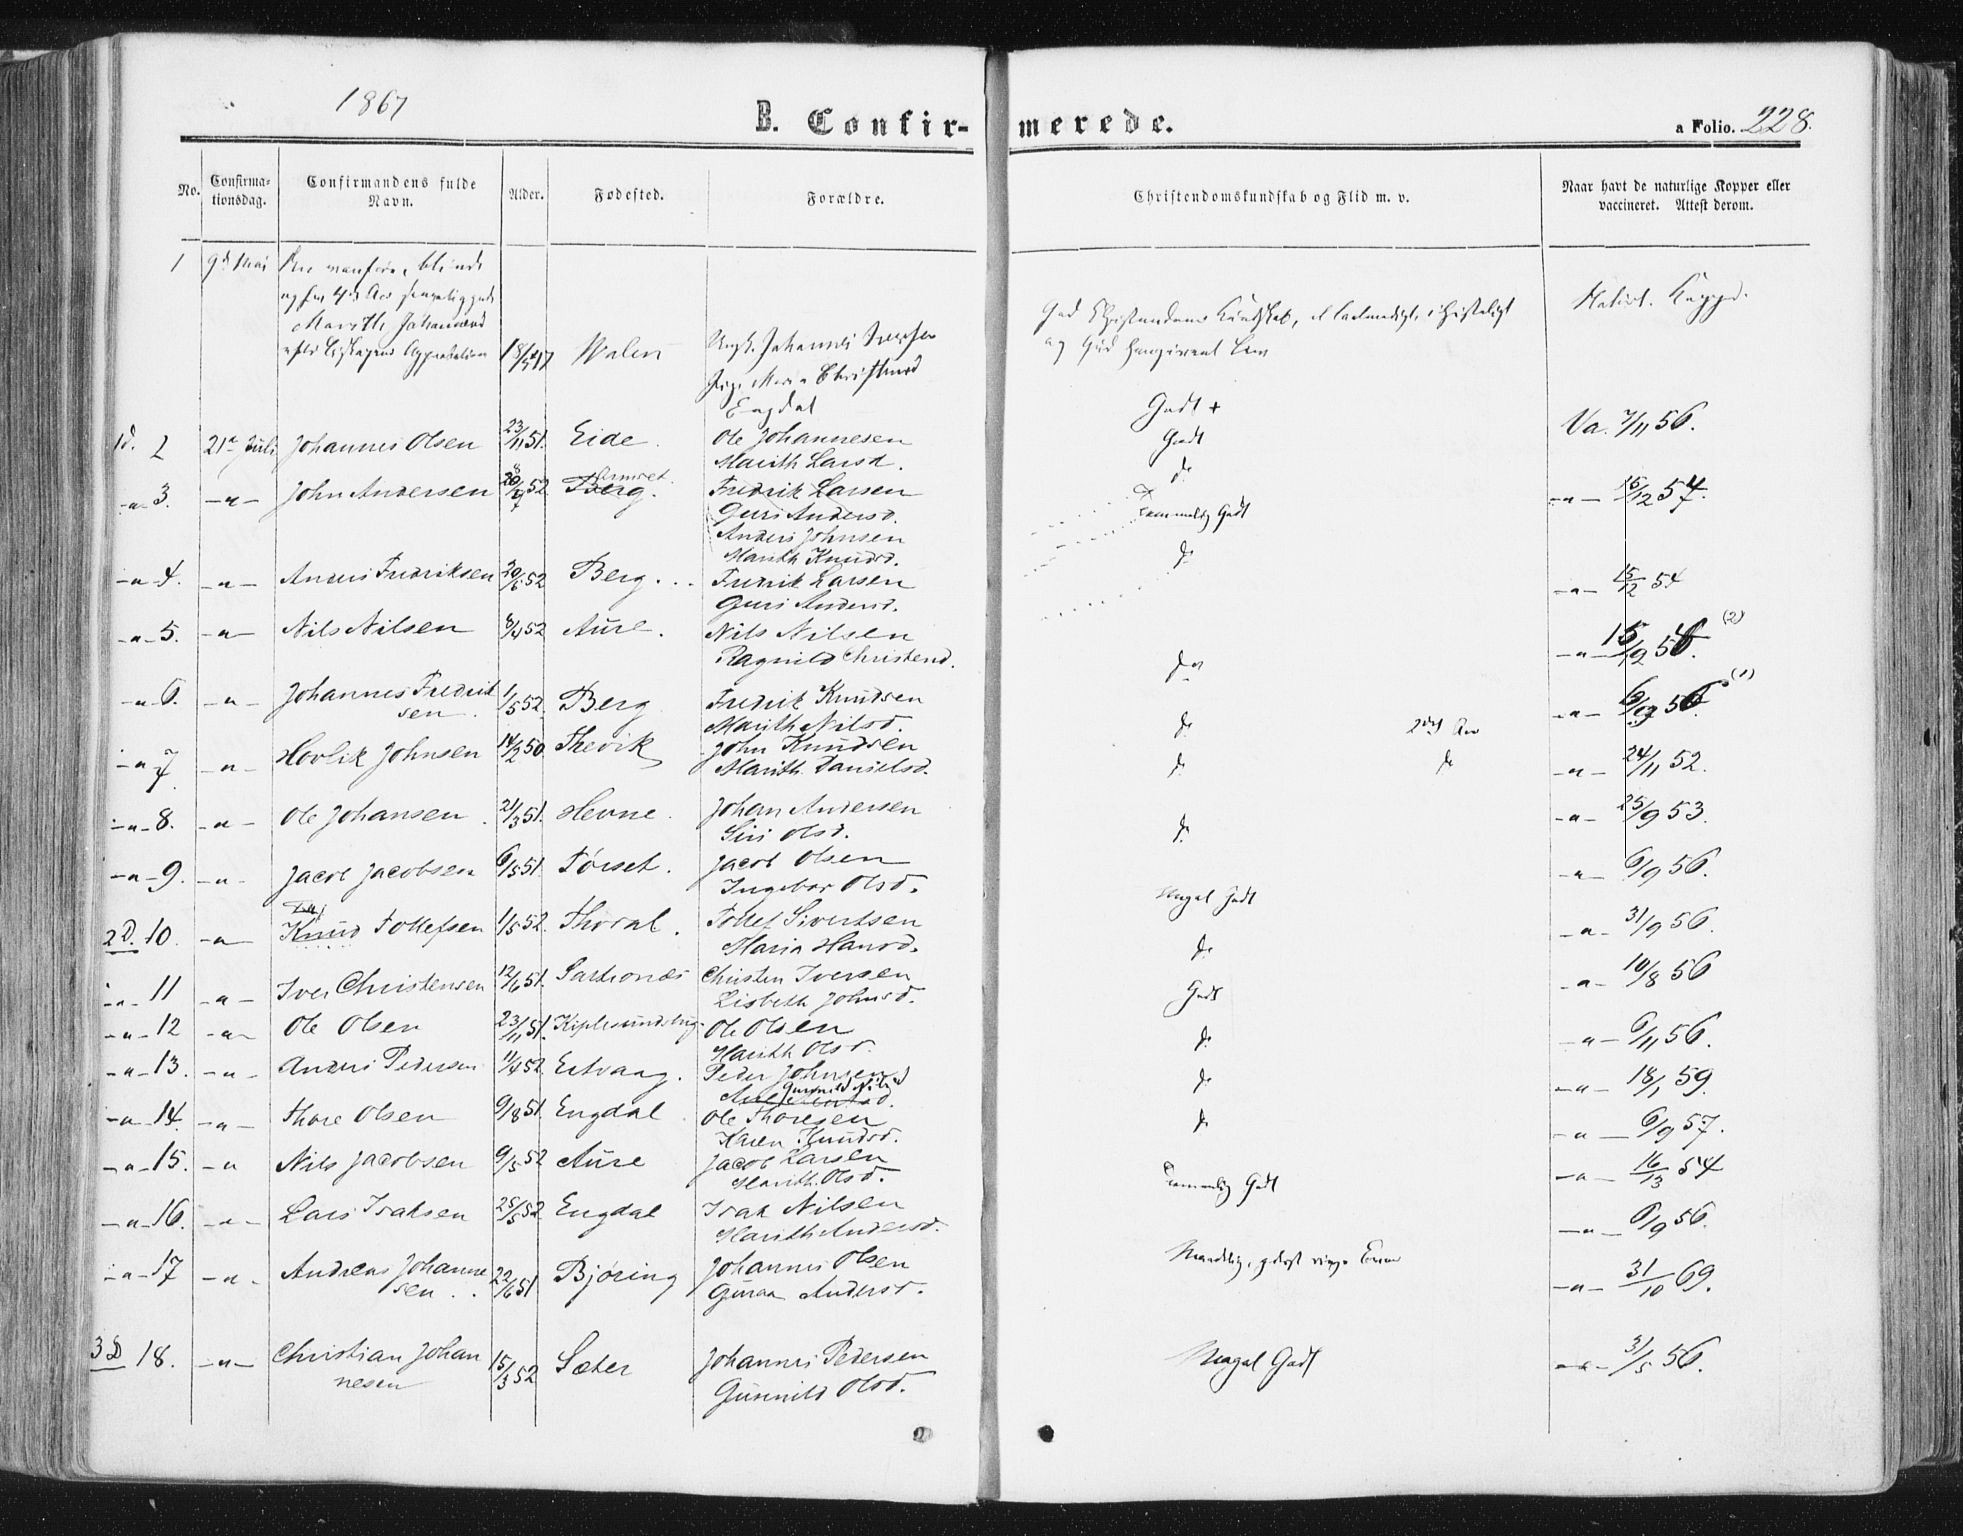 1867
B. Confirmerede.
a Folio. 228.
No.
Confirmationsdag.
Confirmandens fulde Navn.
Alder.
Fødested.
Forældre.
Christendomskundskab og Flid m. v.
Naar havt de naturlige Kopper eller vaccineret. Attest derom.
1 9de Mai blinde
Marith Johannesd
18/ 17
Engdal
1d. 2 21de Juli Johannes Olsen 23/11 51. Eide. Ole Johannesen Godt + Va. 7/11 56.
Marith Larsd. Godt
-"- 3. -"- John Andersen 52 Berg. Fredrik Larsen do -"- 15/12 54.
Guri Andersd. Temmelig Godt
Anders Johnsen
Marith Knudsd. do
-"- 4. -"- Anders Fredriksen 20/6 52 Berg... Fredrik Larsen -"- 15/12 54
Guri Andersd.
-"- 5. -"- Nils Nilsen 8/4 52 Aure. Nils Nilsen -"- 15/ 56. (2)
Ragnild Christend. do
-"- 6. -"- Johannes Fredriksen 1/5 52. Berg Fredrik Knudsen -"- 6/9 56 (1)
Marith Nilsd. do 2det Aar
-"- 7. -"- Hovlik Johnsen 14/2 50 Thevik John Knudsen do do -"- 24/11 52.
Marith Danielsd.
-"- 8. -"- Ole Johansen. 21/3 51. Hevne. Johan Andersen do -"- 25/9 53.
Siri Olsd.
-"- 9. -"- Jacob Jacobsen 6/5 51. Tørset. Jacob Olsen -"- 6/9 56.
Ingebor Olsd. Meget Godt
2D. 10. -"- Knud Tollefsen 1/5 52. Thoral. Tollef Sivertsen -"- 31/9 56.
Maria Hansd. do
-"- 11 -"- Iver Christensen 12/6 51. Christen Iversen -"- 10/8 56
Lisbeth Johnsd. Godt
-"- 12 -"- Ole Olsen 23/11 51. Ole Olsen -"- 6/11 56.
Marith Olsd. do
-"- 13. -"- Anders Pedersen 11/4 52 Estvaag. Peder Johnsen do -"- 18/1 59.
Gunnild Nilsd
-"- 14. -"- Thore Olsen 9/8 51. Engdal. Ole Thoresen do -"- 6/9 57.
Karen Knudsd.
-"- 15. -"- Nils Jacobsen 9/5 52 Aure Jacob Larsen -"- 16/13 54
Marith Olsd. Temmelig Godt
-"- 16. -"- Lars Isaksen 25/5 52 Engdal Isak Nilsen -"- 6/9 56.
Marith Andersd.
-"- 17 -"- Andreas Johannesen.. 22/6 51 Bjøring Johannes Olsen -"- 31/10 69.
Guraa Andersd.
3D 18. -"- Christian Johannesen 15/3 52 Sæter Johannes Pedersen Meget Godt -"- 31/5 56.
Gunnild Olsd.